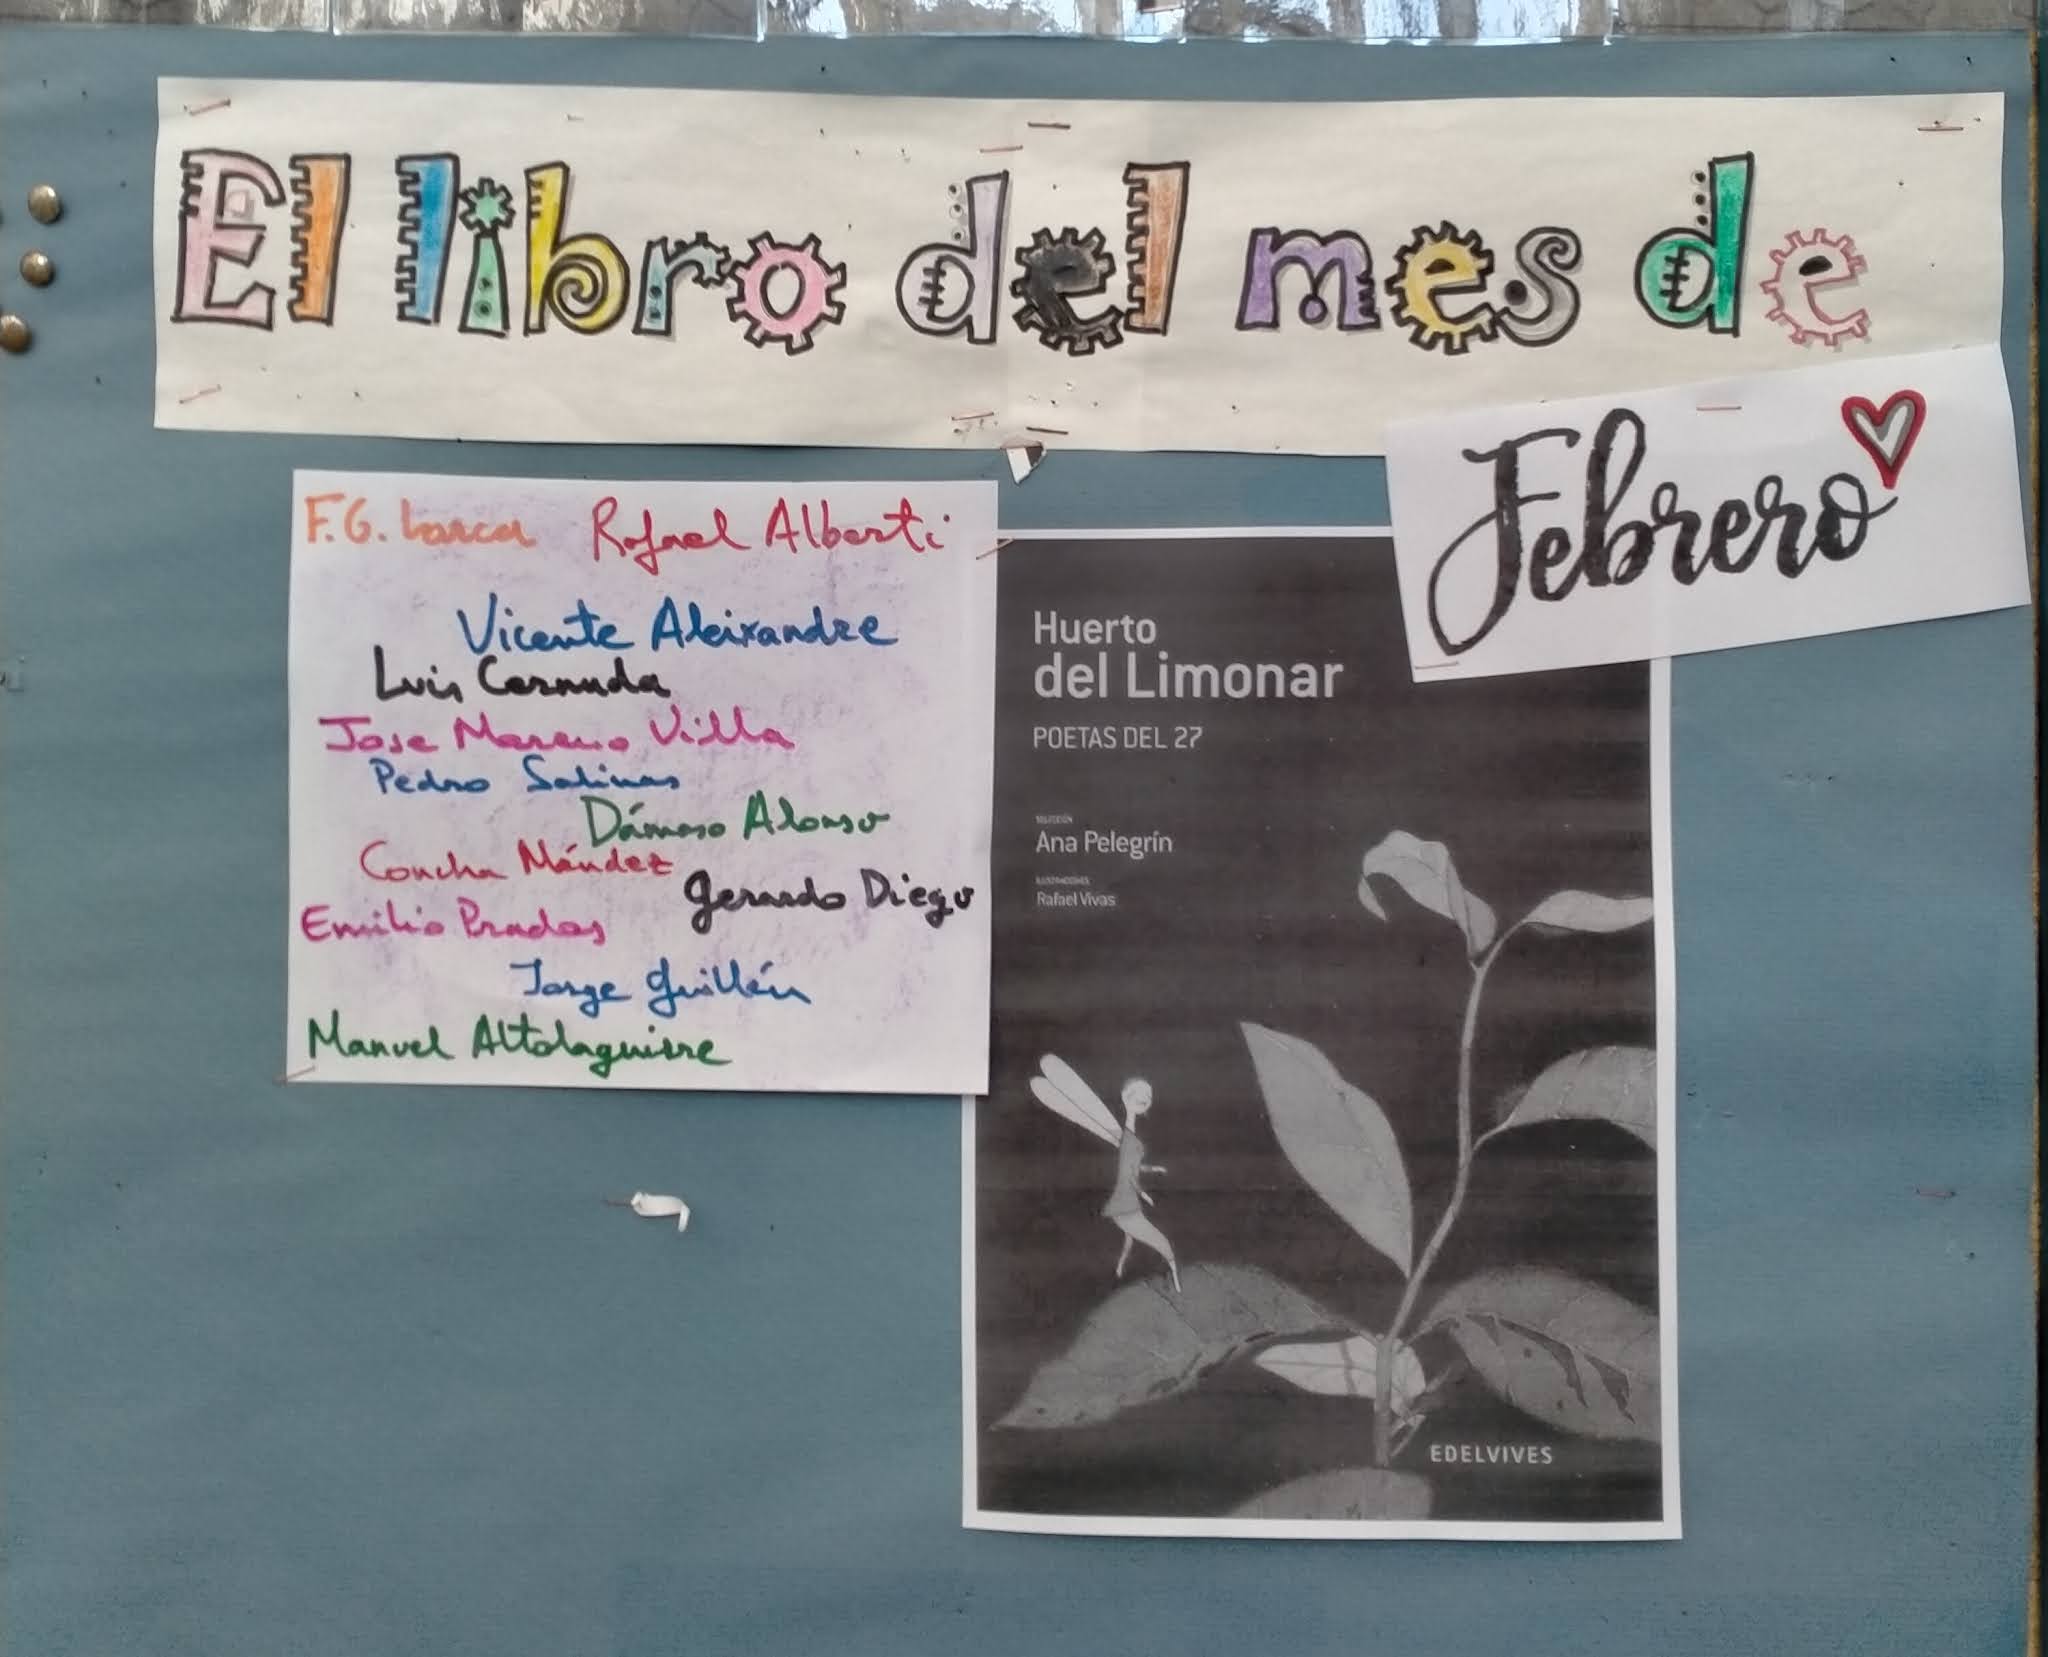 El libro del mes de
Febrero
F.G. Lorca Rafael Alberti
Vicente Aleixandre
Luis Cernuda
Jose Moreno Villa
Pedro Salinas
Dámaso Alonso
Concha Méndez
Gerardo Diego
Emilio Prados
Jorge Guillén
Manuel Altolaguirre
Huerto
del Limonar
POETAS DEL 27
SELECCIÓN
Ana Pelegrín
ILUSTRACIONES
Rafael Vivas
EDELVIVES